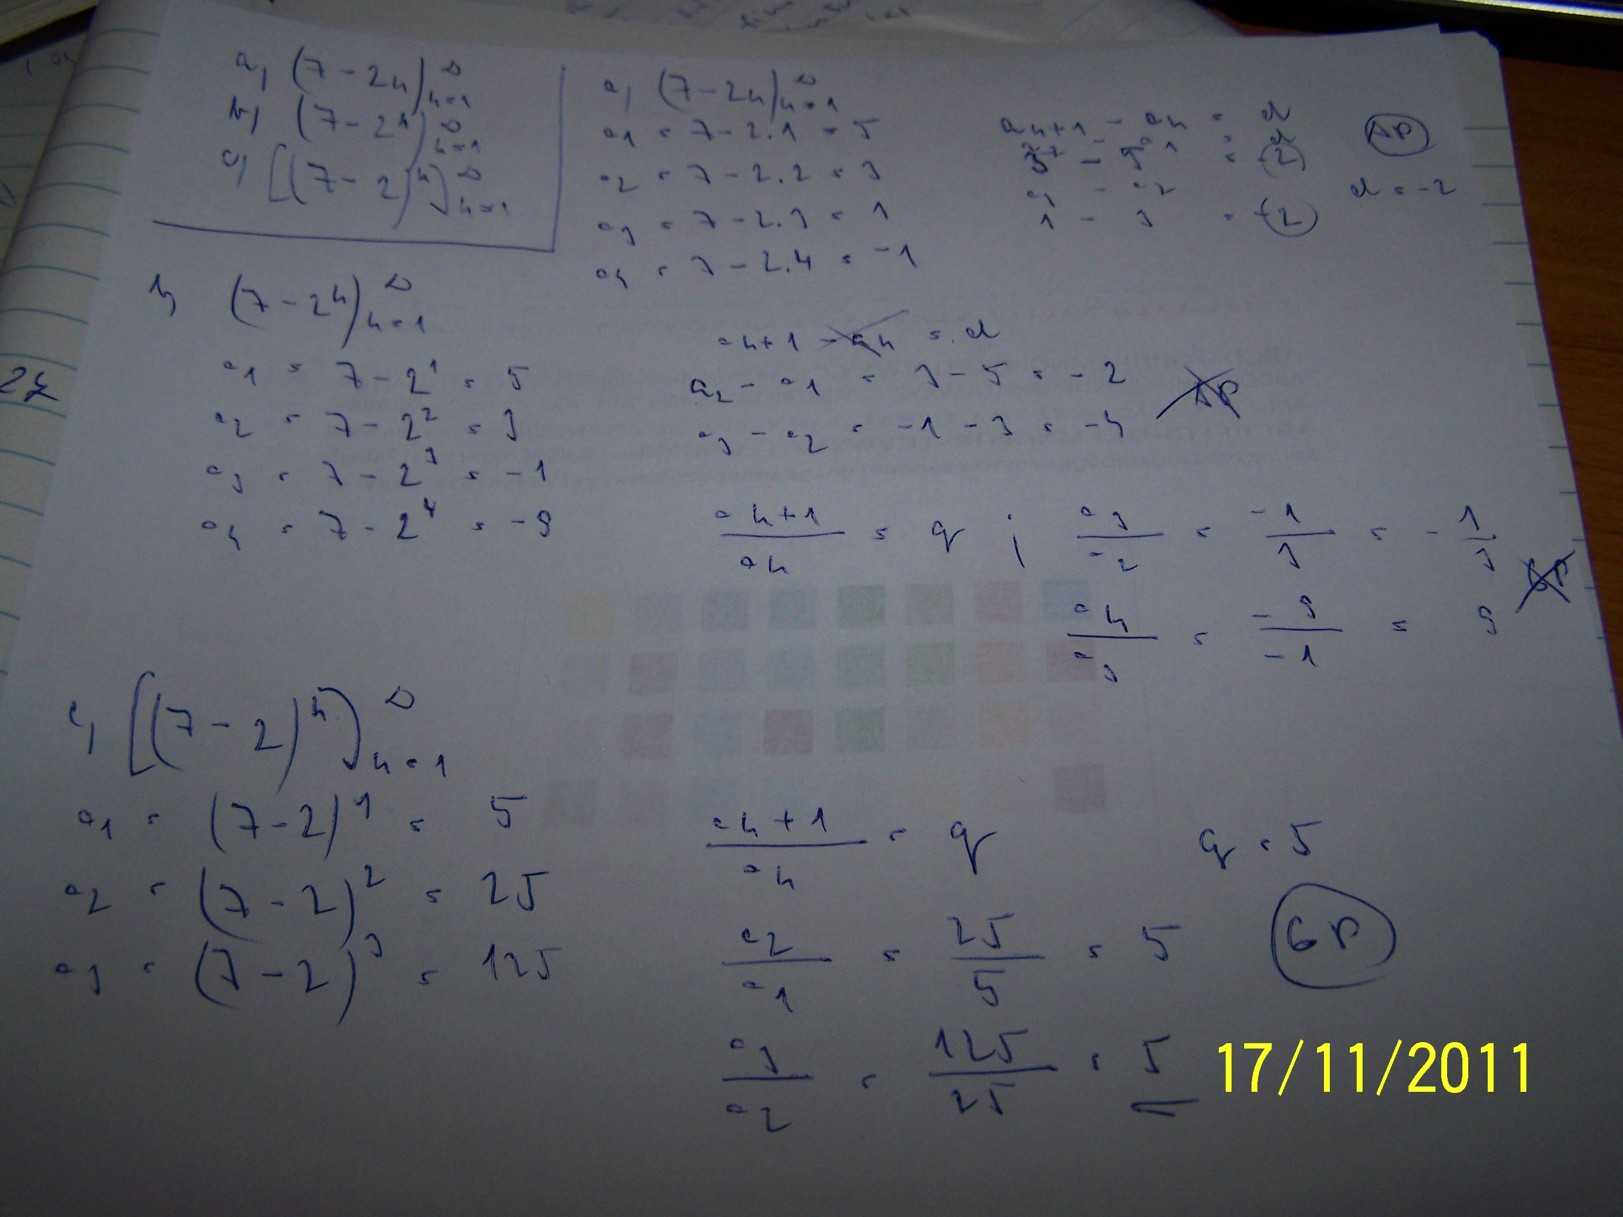 a) (7-2n)∞n=1
b) (7-2ⁿ)∞n=1
c) [(7-2)ⁿ]∞n=1
a) (7-2n)∞n=1
a1 = 7-2.1 = 5
a2 = 7-2.2 = 3
a3 = 7-2.3 = 1
a4 = 7-2.4 = -1
an+1 - an = d
= -2
a3 - a2
1 - 3 = -2
AP
d = -2
b) (7-2ⁿ)∞n=1
a1 = 7-2¹ = 5
a2 = 7-2² = 3
a3 = 7-2³ = -1
a4 = 7-2⁴ = -9
an+1 - an = d
a2 - a1 = 3-5 = -2
a3 - a2 = -1-3 = -4
AP
an+1/an = q ; a3/a2 = -1/3 = -1/3
a4/a3 = -9/-1 = 9
GP
c) [(7-2)ⁿ]∞n=1
a1 = (7-2)¹ = 5
a2 = (7-2)² = 25
a3 = (7-2)³ = 125
an+1/an = q q = 5
a2/a1 = 25/5 = 5
GP
a3/a2 = 125/25 = 5
17/11/2011